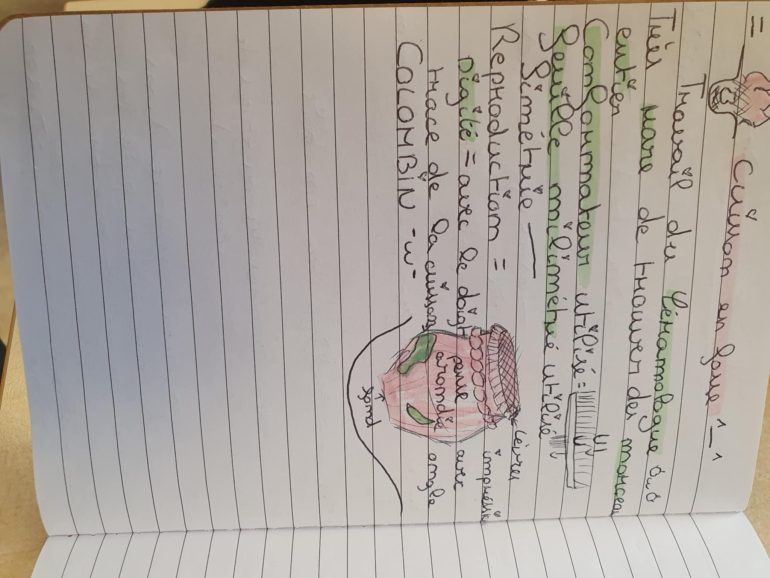 = Cuisson en fosse
Travail du Cématologue
Très rare de trouver des morceau
entier
Conformateur utilisé =
Feuille milimétré utilisé
Simétrie —
Reproduction =
Digité = avec le doigt
trace de la cuisson
COLOMBIN -u-
Lèvres
imprécis
panse
arrondie avec angle
fond